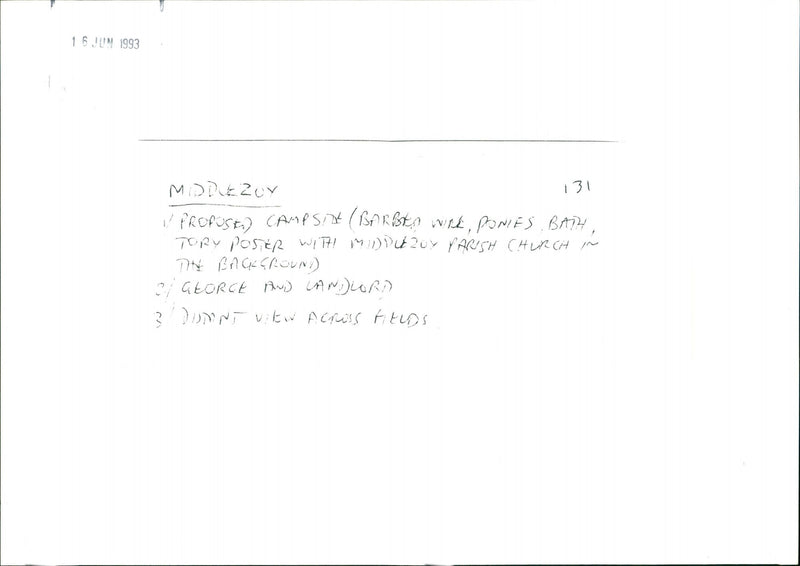 16 JUN 1993
MIDDLEZOY 131
1/ PROPOSED CAMPSITE (BARBED WIRE, PONIES, BATH,
TORY POSTER WITH MIDDLEZOY PARISH CHURCH IN
THE BACKGROUND)
2/ GEORGE AND LANDLORD
3/ DISTANT VIEW ACROSS FIELDS